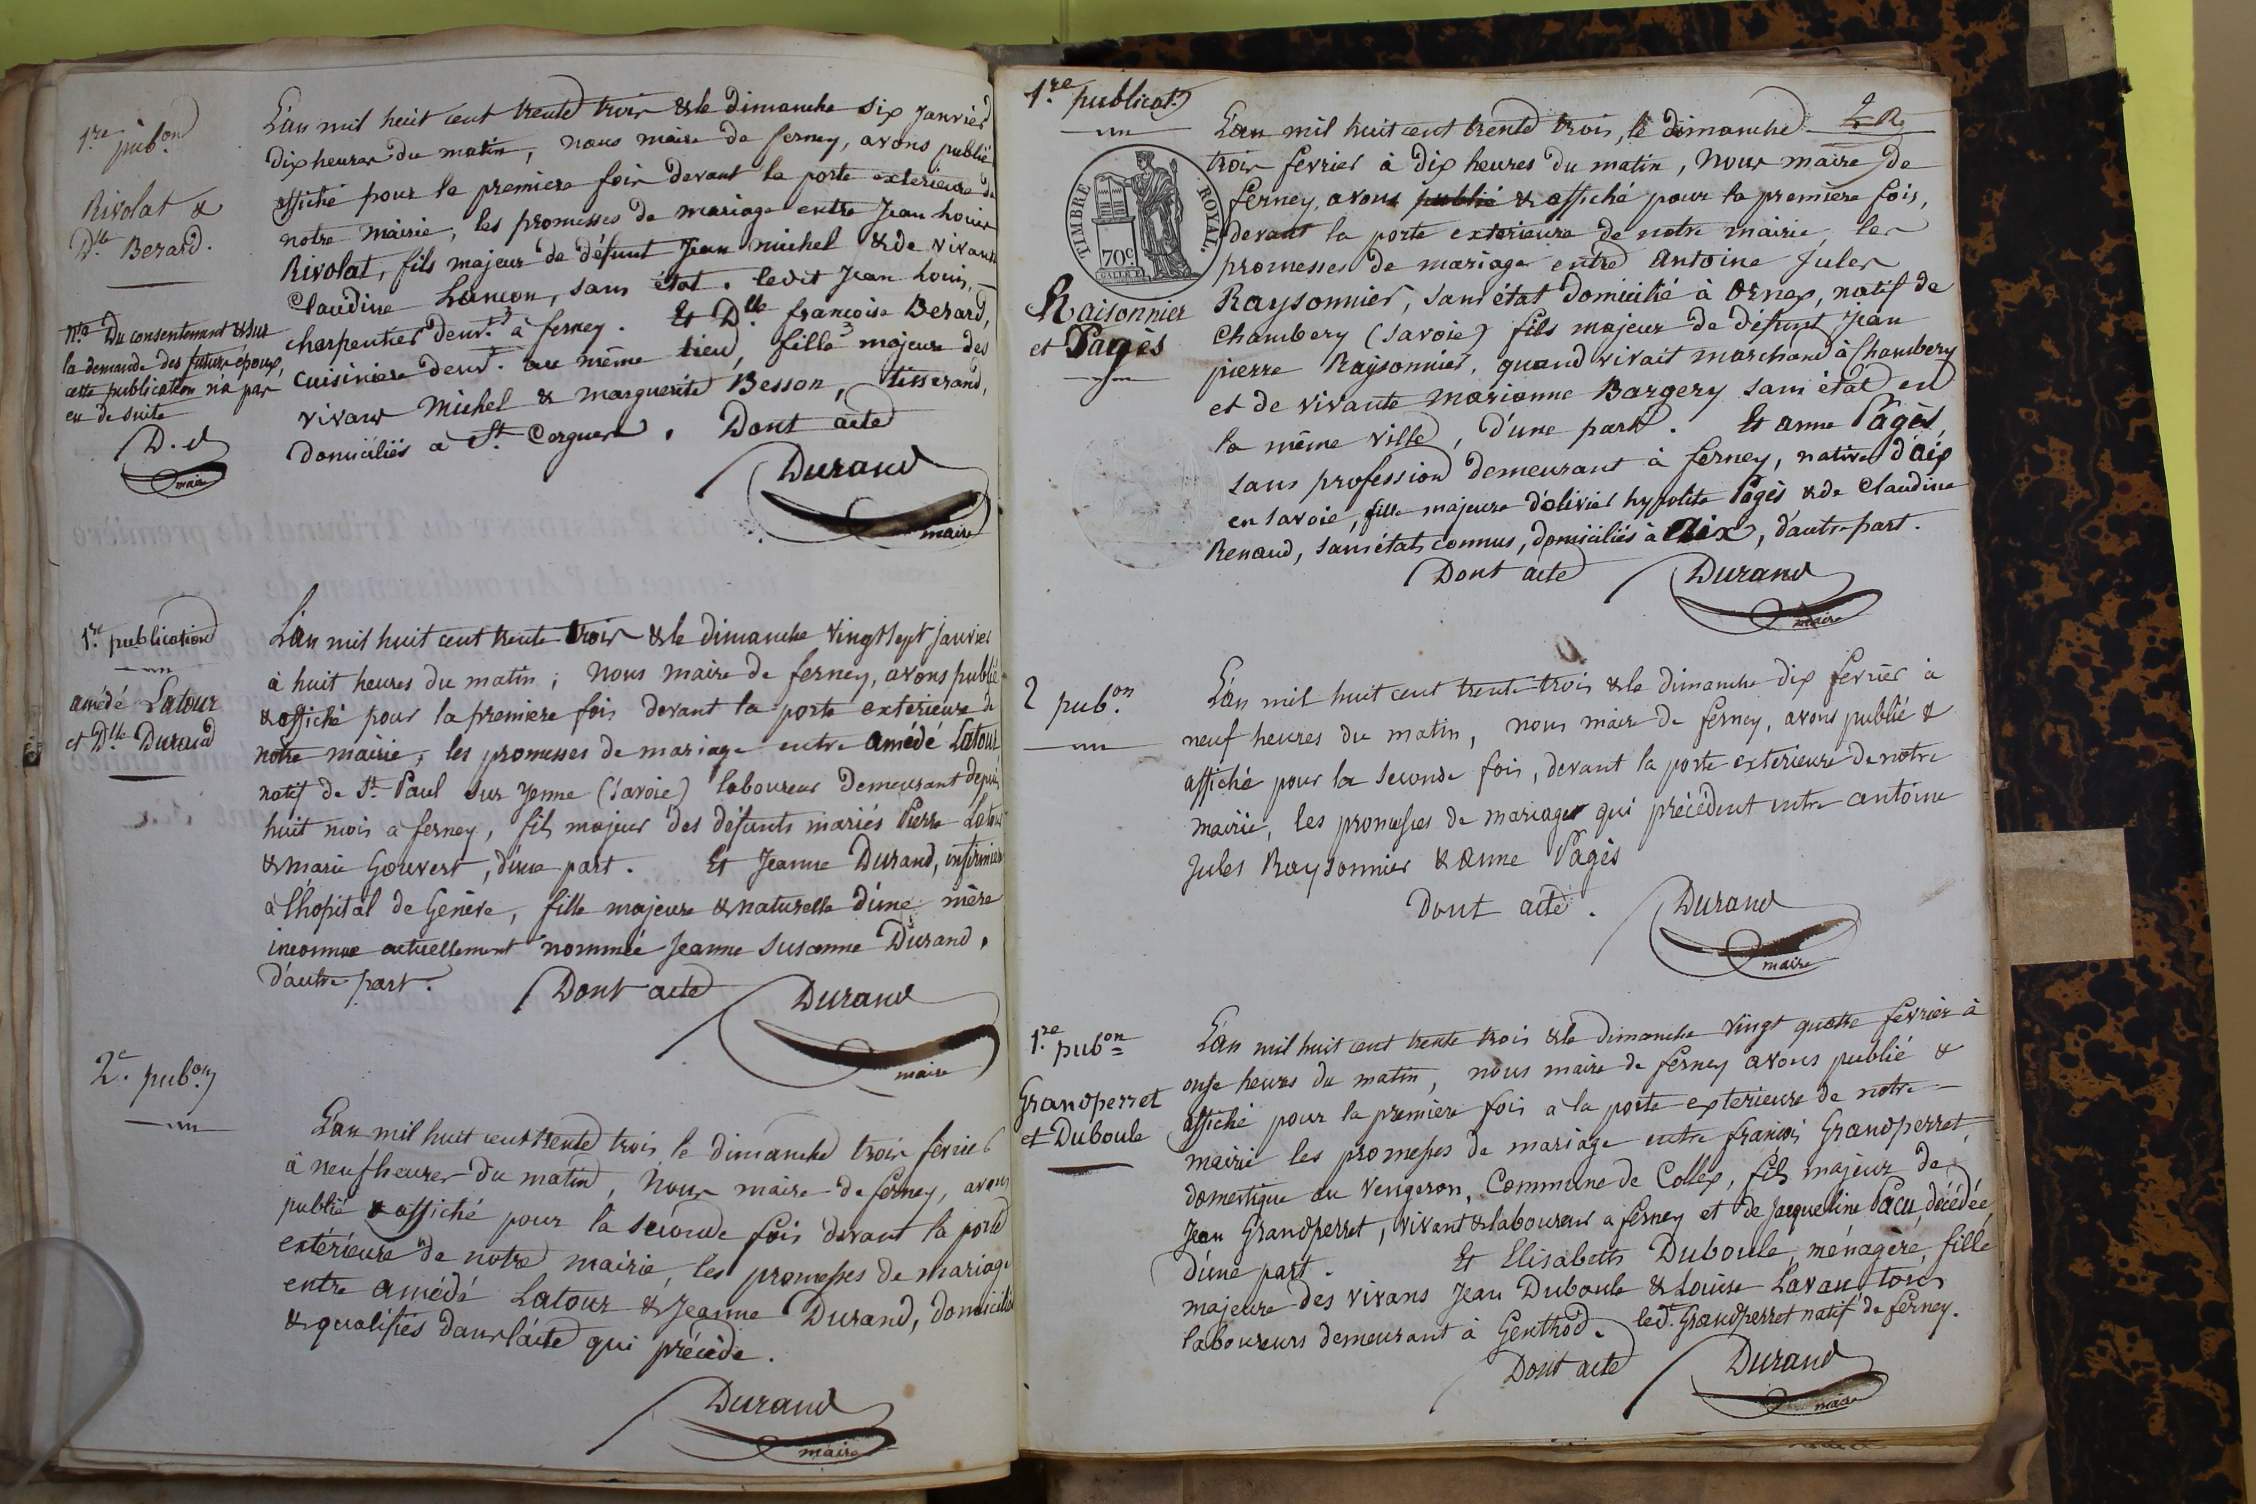 1re pubon
Rivolat &
Dlle Berard.
Nta Du consentement & sur
la demande des futurs époux,
cette publication n'a pas
eu de suite
D. d
maire
L'an mil huit cent trente trois & le dimanche six Janvier
dix heures du matin, nous maire de ferney, avons publié
affiché pour la premiere fois devant la porte exterieure de
notre mairie, les promesses de mariage entre Jean Louis
Rivolat, fils majeur de défunt Jean michel & de vivante
Claudine Lançon, sans état. ledit Jean Louis,
charpentier demt. à ferney. Et Dlle françoise Berard,
cuisiniere demt. au même lieu, fille majeure des
vivans Michel & marguerite Besson, tisserand,
domiciliés a St. Cergues. Dont acte
Durand
maire
1re publication
amédé Latour
et Dlle Durand
L'an mil huit cent trente trois & le dimanche vingt sept janvier
à huit heures du matin; nous maire de ferney, avons publié
& affiché pour la premiere fois devant la porte exterieure de
notre mairie, les promesses de mariage entre amédé Latour
natif de St. Paul sur yenne (Savoie) laboureur demeurant depuis
huit mois a ferney, fils majeur des défunts mariés Pierre Latour
& marie Gouvert, d'une part. Et Jeanne Durand, infirmiere
à l'hopital de Genève, fille majeure & naturelle d'une mère
inconnue actuellement nommée Jeanne Susanne Durand,
d'autre part. Dont acte
Durand
maire
2e. pubon
L'an mil huit cent trente trois le dimanche trois fevrier
à neuf heures du matin, Nous maire de ferney, avons
publié & affiché pour la seconde fois devant la porte
extérieure de notre mairie, les promesses de mariage
entre amédé Latour & Jeanne Durand, domiciliés
& qualifiés dans l'acte qui précède.
Durand
maire
1re publicat.
TIMBRE ROYAL.
70c
Raisonnier
et Pagès
L'an mil huit cent trente trois, le dimanche
trois fevrier à dix heures du matin, Nous maire de
ferney, avons publié & affiché pour la premiere fois,
devant la porte exterieure de notre mairie, les
promesses de mariage entre Antoine Jules
Raysonnier, sans état domicilié à Ornex, natif de
Chambery (Savoie) fils majeur de défunt Jean
pierre Raysonnier, quand vivait marchand à Chambery
et de vivante marianne Bargery sans état en
la même ville, d'une part. Et anne Pagès,
sans profession demeurant à ferney, native d'aix
en Savoie, fille majeure d'olivier hypolite Pagès & de Claudine
Renaud, sans états connus, domiciliés à aix, d'autre part.
Dont acte Durand
maire
2 pubon
L'an mil huit cent trente trois & le dimanche dix fevrier à
neuf heures du matin, nous maire de ferney, avons publié &
affiché pour la seconde fois, devant la porte exterieure de notre
mairie, les promesses de mariages qui précèdent entre antoine
Jules Raysonnier & anne Pagès
Dont acte. Durand
maire
1re pubon
Grandperret
et Duboule
L'an mil huit cent trente trois & le dimanche vingt quatre fevrier à
onze heures du matin, nous maire de ferney avons publié &
affiché pour la premiere fois a la porte exterieure de notre
mairie les promesses de mariage entre francois Grandperret,
domestique au Vengeron, Commune de Collex, fils majeur de
Jean Grandperret, vivant & laboureur a ferney et de Jacqueline Pacu, décédée,
d'une part. Et Elisabeth Duboule, ménagère, fille
majeure des vivans Jean Duboule & Louise Lavau, tous
laboureurs demeurant à Genthod. led. Grandperret natif de ferney.
Dont acte Durand
maire